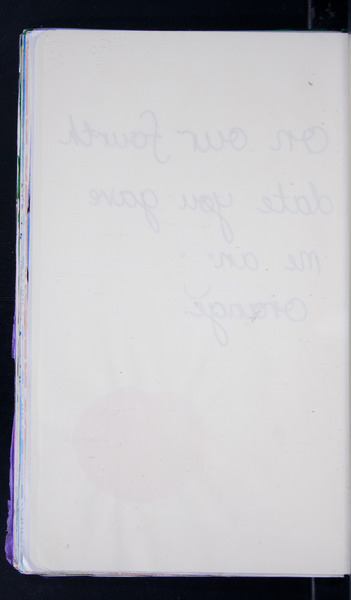 on our fourth
date you gave
me an:
orange